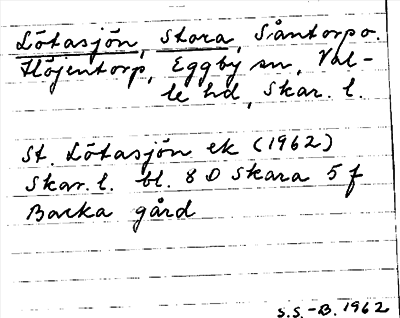 Lötasjön, Stora, Såntorp o.
Höjentorp, Eggby sn, Val-
le hd, Skar. l.
St. Lötasjön ek (1962)
Skar. l. bl. 8 D Skara 5 f
Backa gård
S.S.-B. 1962